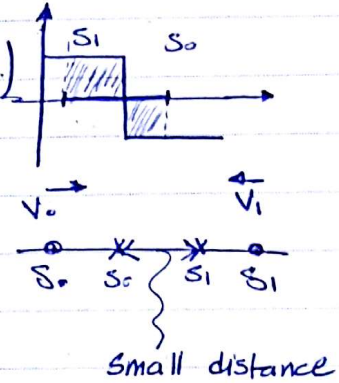 S1 S0
V0 V1
S0 S0 S1 S1
Small distance